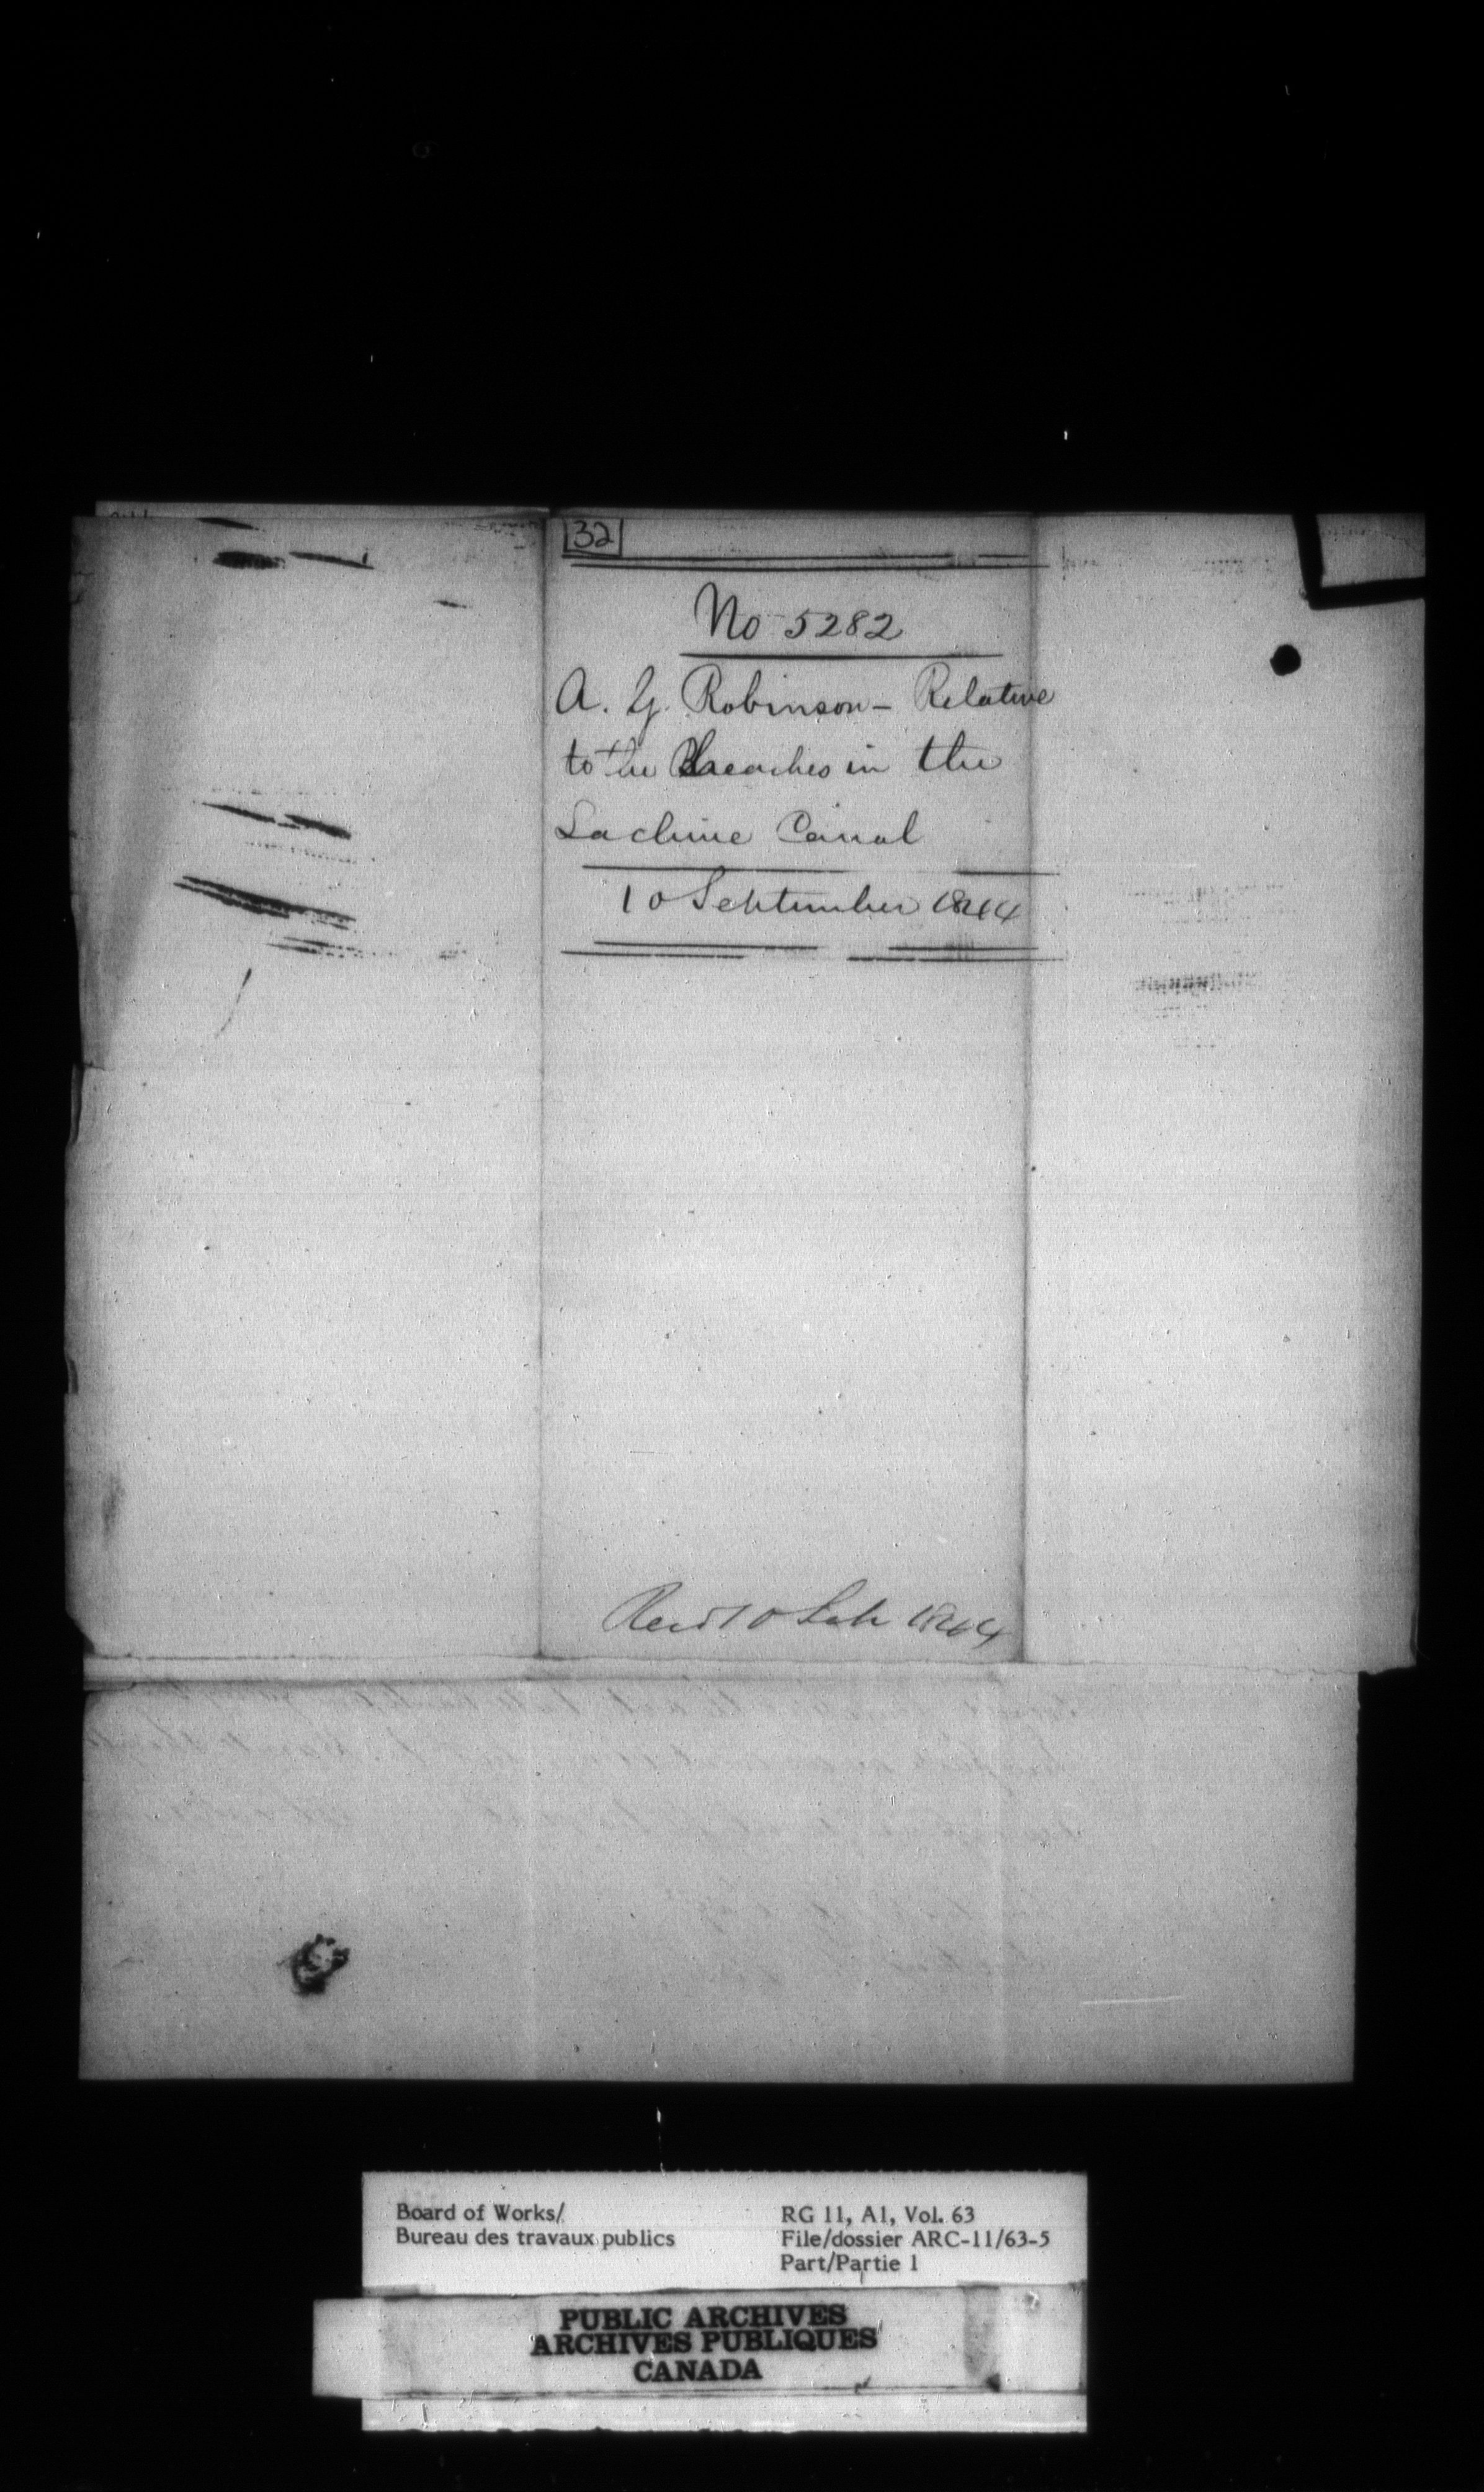 32
No 5282
A. G. Robinson - Relative
to the Breaches in the
Lachine Canal
10 September 1844
Recd 10 Sep 1844
Board of Works/
Bureau des travaux publics
RG 11, A1, Vol. 63
File/dossier ARC-11/63-5
Part/Partie 1
PUBLIC ARCHIVES
ARCHIVES PUBLIQUES
CANADA